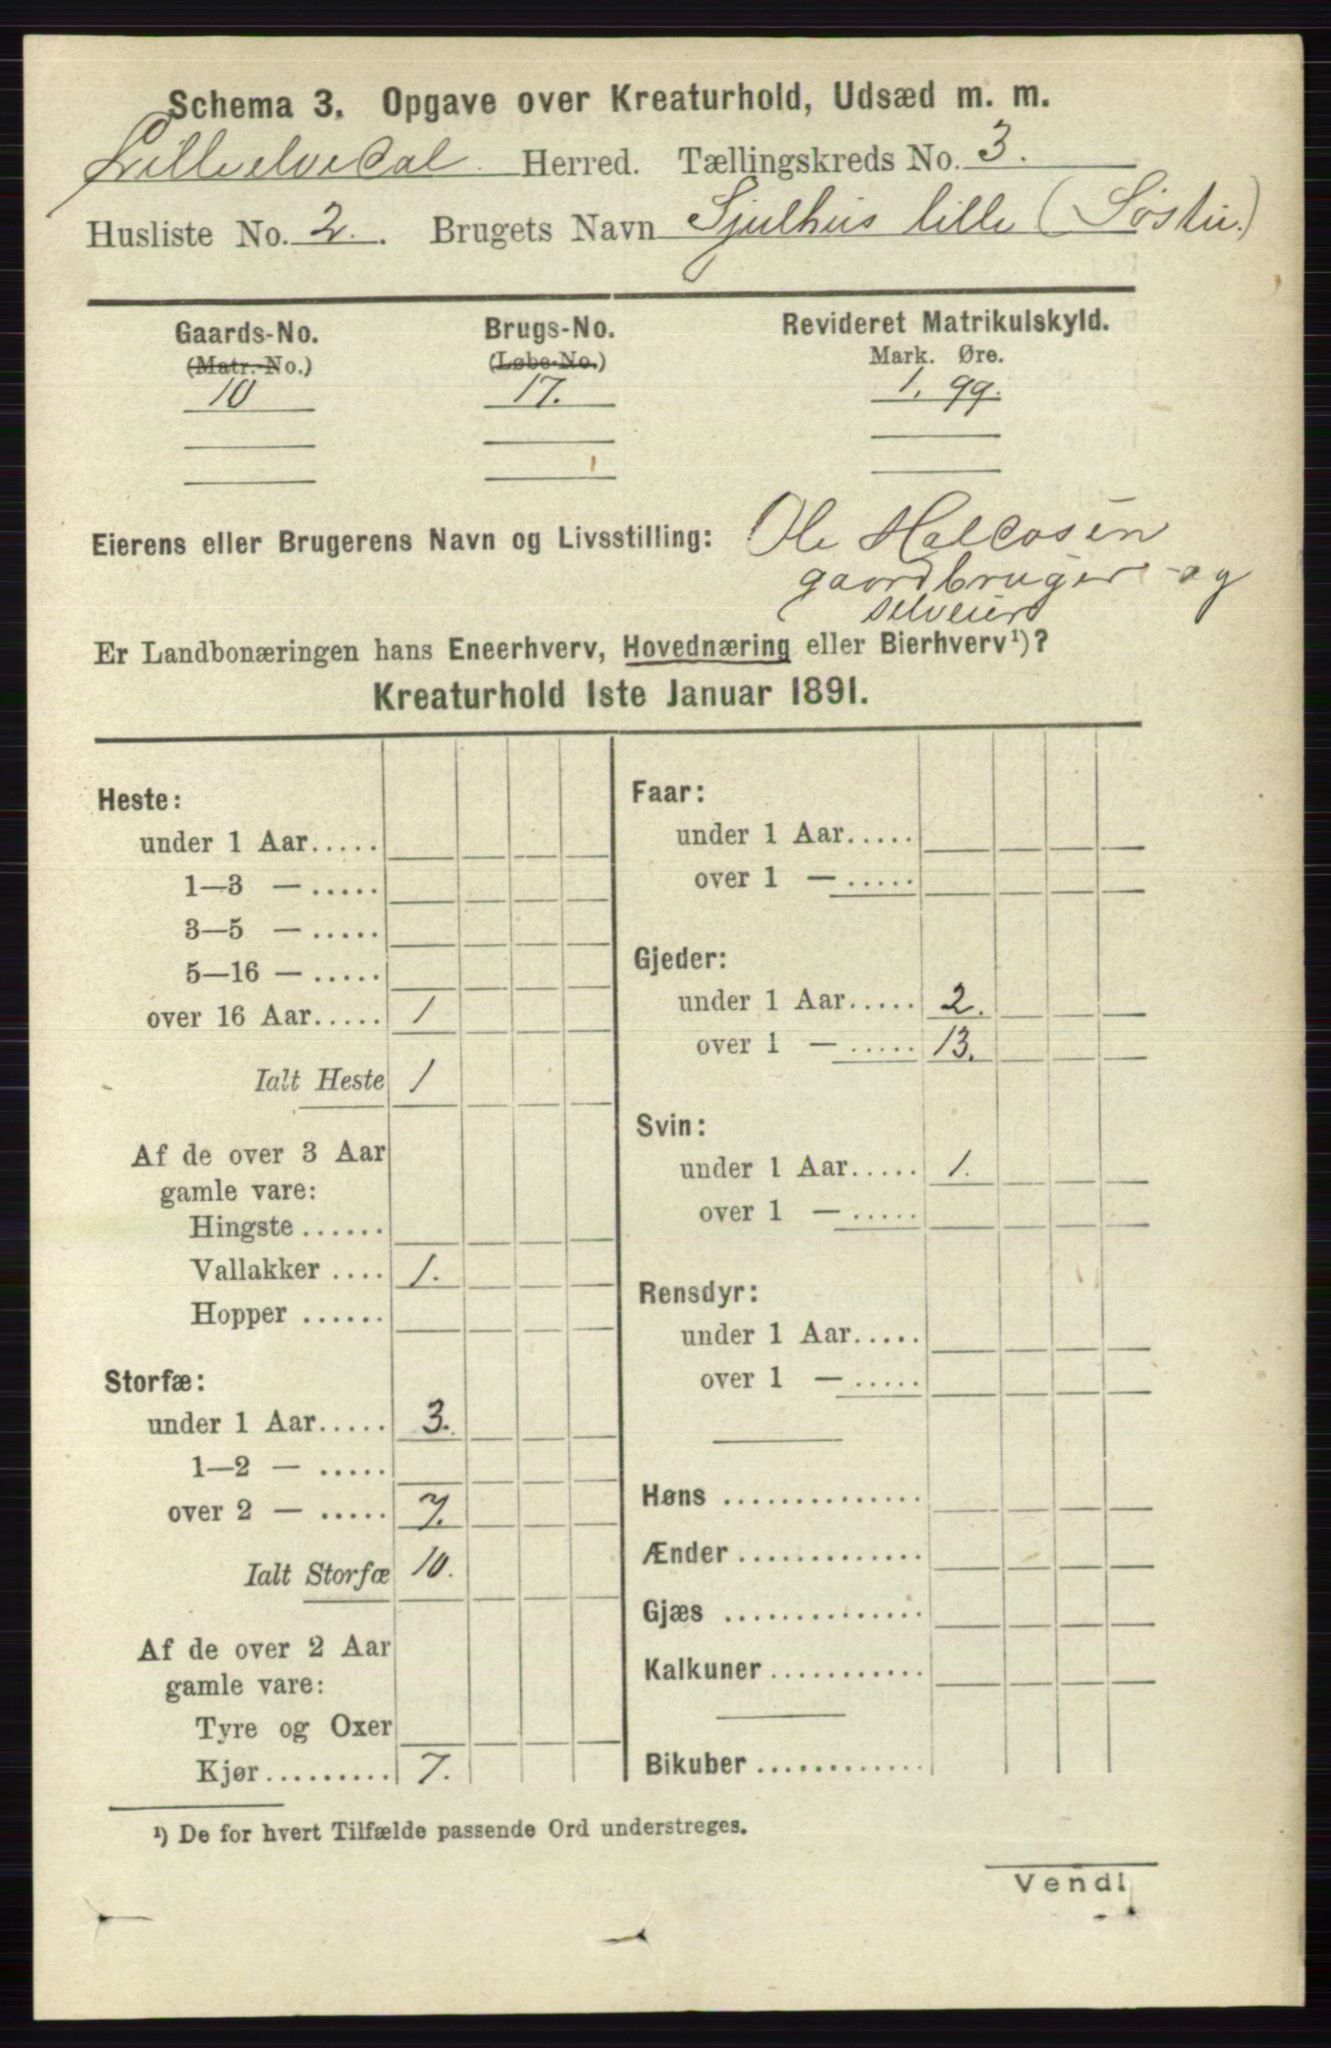 Schema 3. Opgave over Kreaturhold, Udsæd m. m.
Lilleelvedal Herred. Tællingskreds No. 3.
Husliste No. 2. Brugets Navn Sjulhus lille (Søstu.)
Gaards-No. Brugs-No. Revideret Matrikulskyld.
(Matr.-No.) (Løbe-No.) Mark. Øre.
10 17. 1. 99.
Eierens eller Brugerens Navn og Livsstilling: Ole Halvosen
gaardbruger og
selveier
Er Landbonæringen hans Eneerhverv, Hovednæring eller Bierhverv¹)?
Kreaturhold 1ste Januar 1891.
Heste:
under 1 Aar.....
1—3 — .....
3—5 — .....
5—16 — .....
over 16 Aar..... 1
Ialt Heste 1
Af de over 3 Aar
gamle vare:
Hingste ......
Vallakker .... 1.
Hopper ......
Storfæ:
under 1 Aar..... 3.
1—2 — .....
over 2 — ..... 7.
Ialt Storfæ 10.
Af de over 2 Aar
gamle vare:
Tyre og Oxer
Kjør.......... 7.
Faar:
under 1 Aar.....
over 1 — .....
Gjeder:
under 1 Aar..... 2.
over 1 — ..... 13.
Svin:
under 1 Aar..... 1.
over 1 — .....
Rensdyr:
under 1 Aar.....
over 1 — .....
Høns ..............
Ænder .............
Gjæs ..............
Kalkuner ...........
Bikuber ............
¹) De for hvert Tilfælde passende Ord understreges.
Vend!